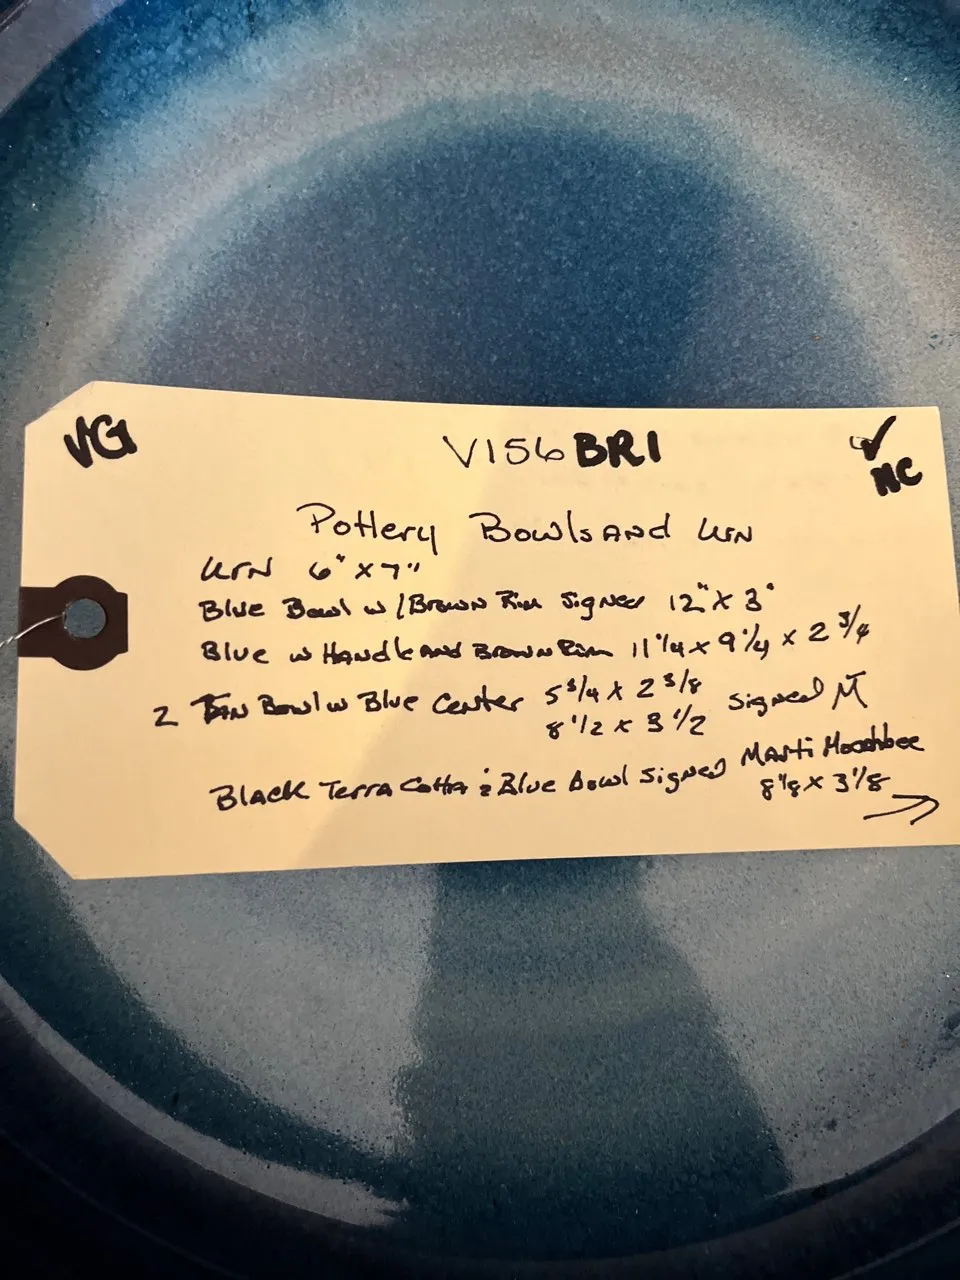 VG V156 BRI ✓
MC
Pottery Bowls and Urn
Urn 6" x 7"
Blue Bowl w/Brown Rim Signed 12" x 3"
Blue w Handle and Brown Rim 11 1/4 x 9 1/4 x 2 3/4
2 Tan Bowl w Blue Center 5 3/4 x 2 3/8 Signed M
8 1/2 x 3 1/2
Black Terra Cotta & Blue Bowl Signed Marti
8 1/8 x 3 1/8 →